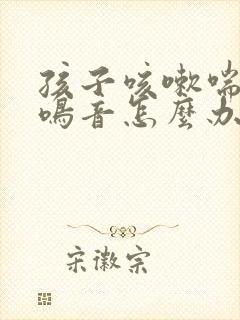 孩子咳嗽喘
鳴音怎麼办
宋徽宗